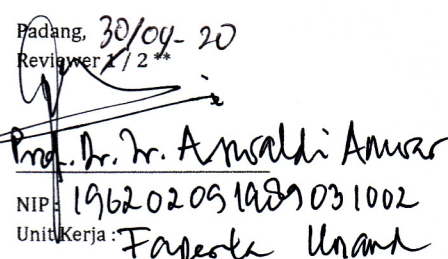 Padang, 30/04-20
Reviewer 1 / 2 **
Prof. Dr. Ir. Aswaldi Anwar
NIP : 196202091989031002
Unit Kerja : Faperta Unand